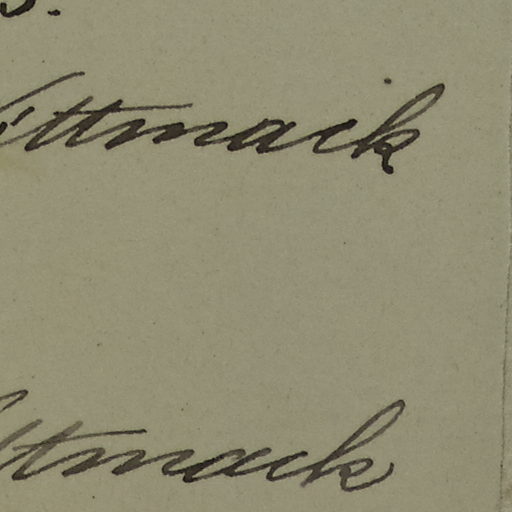 ittmack
ttmack